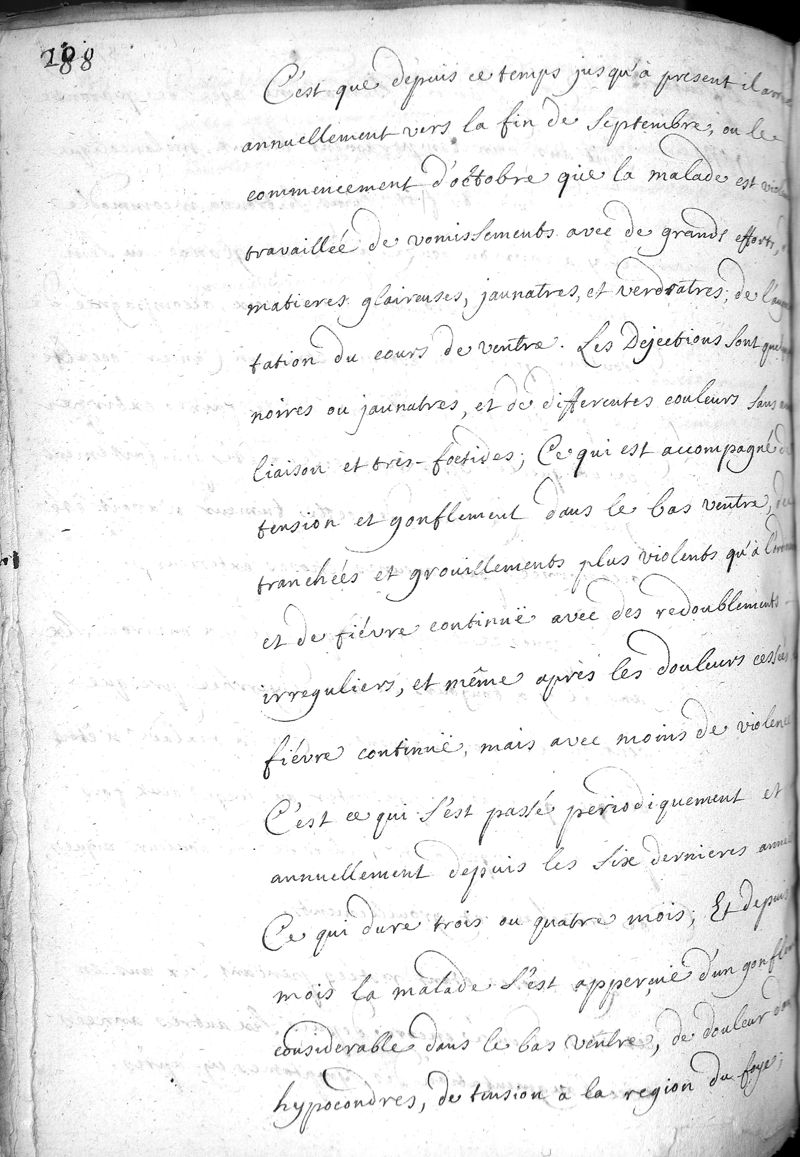 188
C'est que depuis ce temps jusqu'à present il
annuellement vers la fin de Septembre, ou le
commencement d'octobre que la malade est
travaillée de vomissements avec de grands efforts,
matieres glaireuses, jaunatres, et verdratres, de
tation du cours de ventre. Les Dejections sont
noires ou jaunatres, et de differentes couleurs sans
liaison et tres-foetides; Ce qui est accompagné
tension et gonflement dans le bas ventre,
tranchées et grouillements plus violents qu'à
et de fiévre continuë avec des redoublements
irreguliers, et même après les douleurs cessées
fiévre continuë, mais avec moins de violence
C'est ce qui s'est passé periodiquement et
annuellement depuis les six dernieres
Ce qui dure trois ou quatre mois; Et depuis
mois la malade s'est apperçuë d'un
considerable dans le bas ventre, de douleur
hypocondres, de tension a la region du foye;